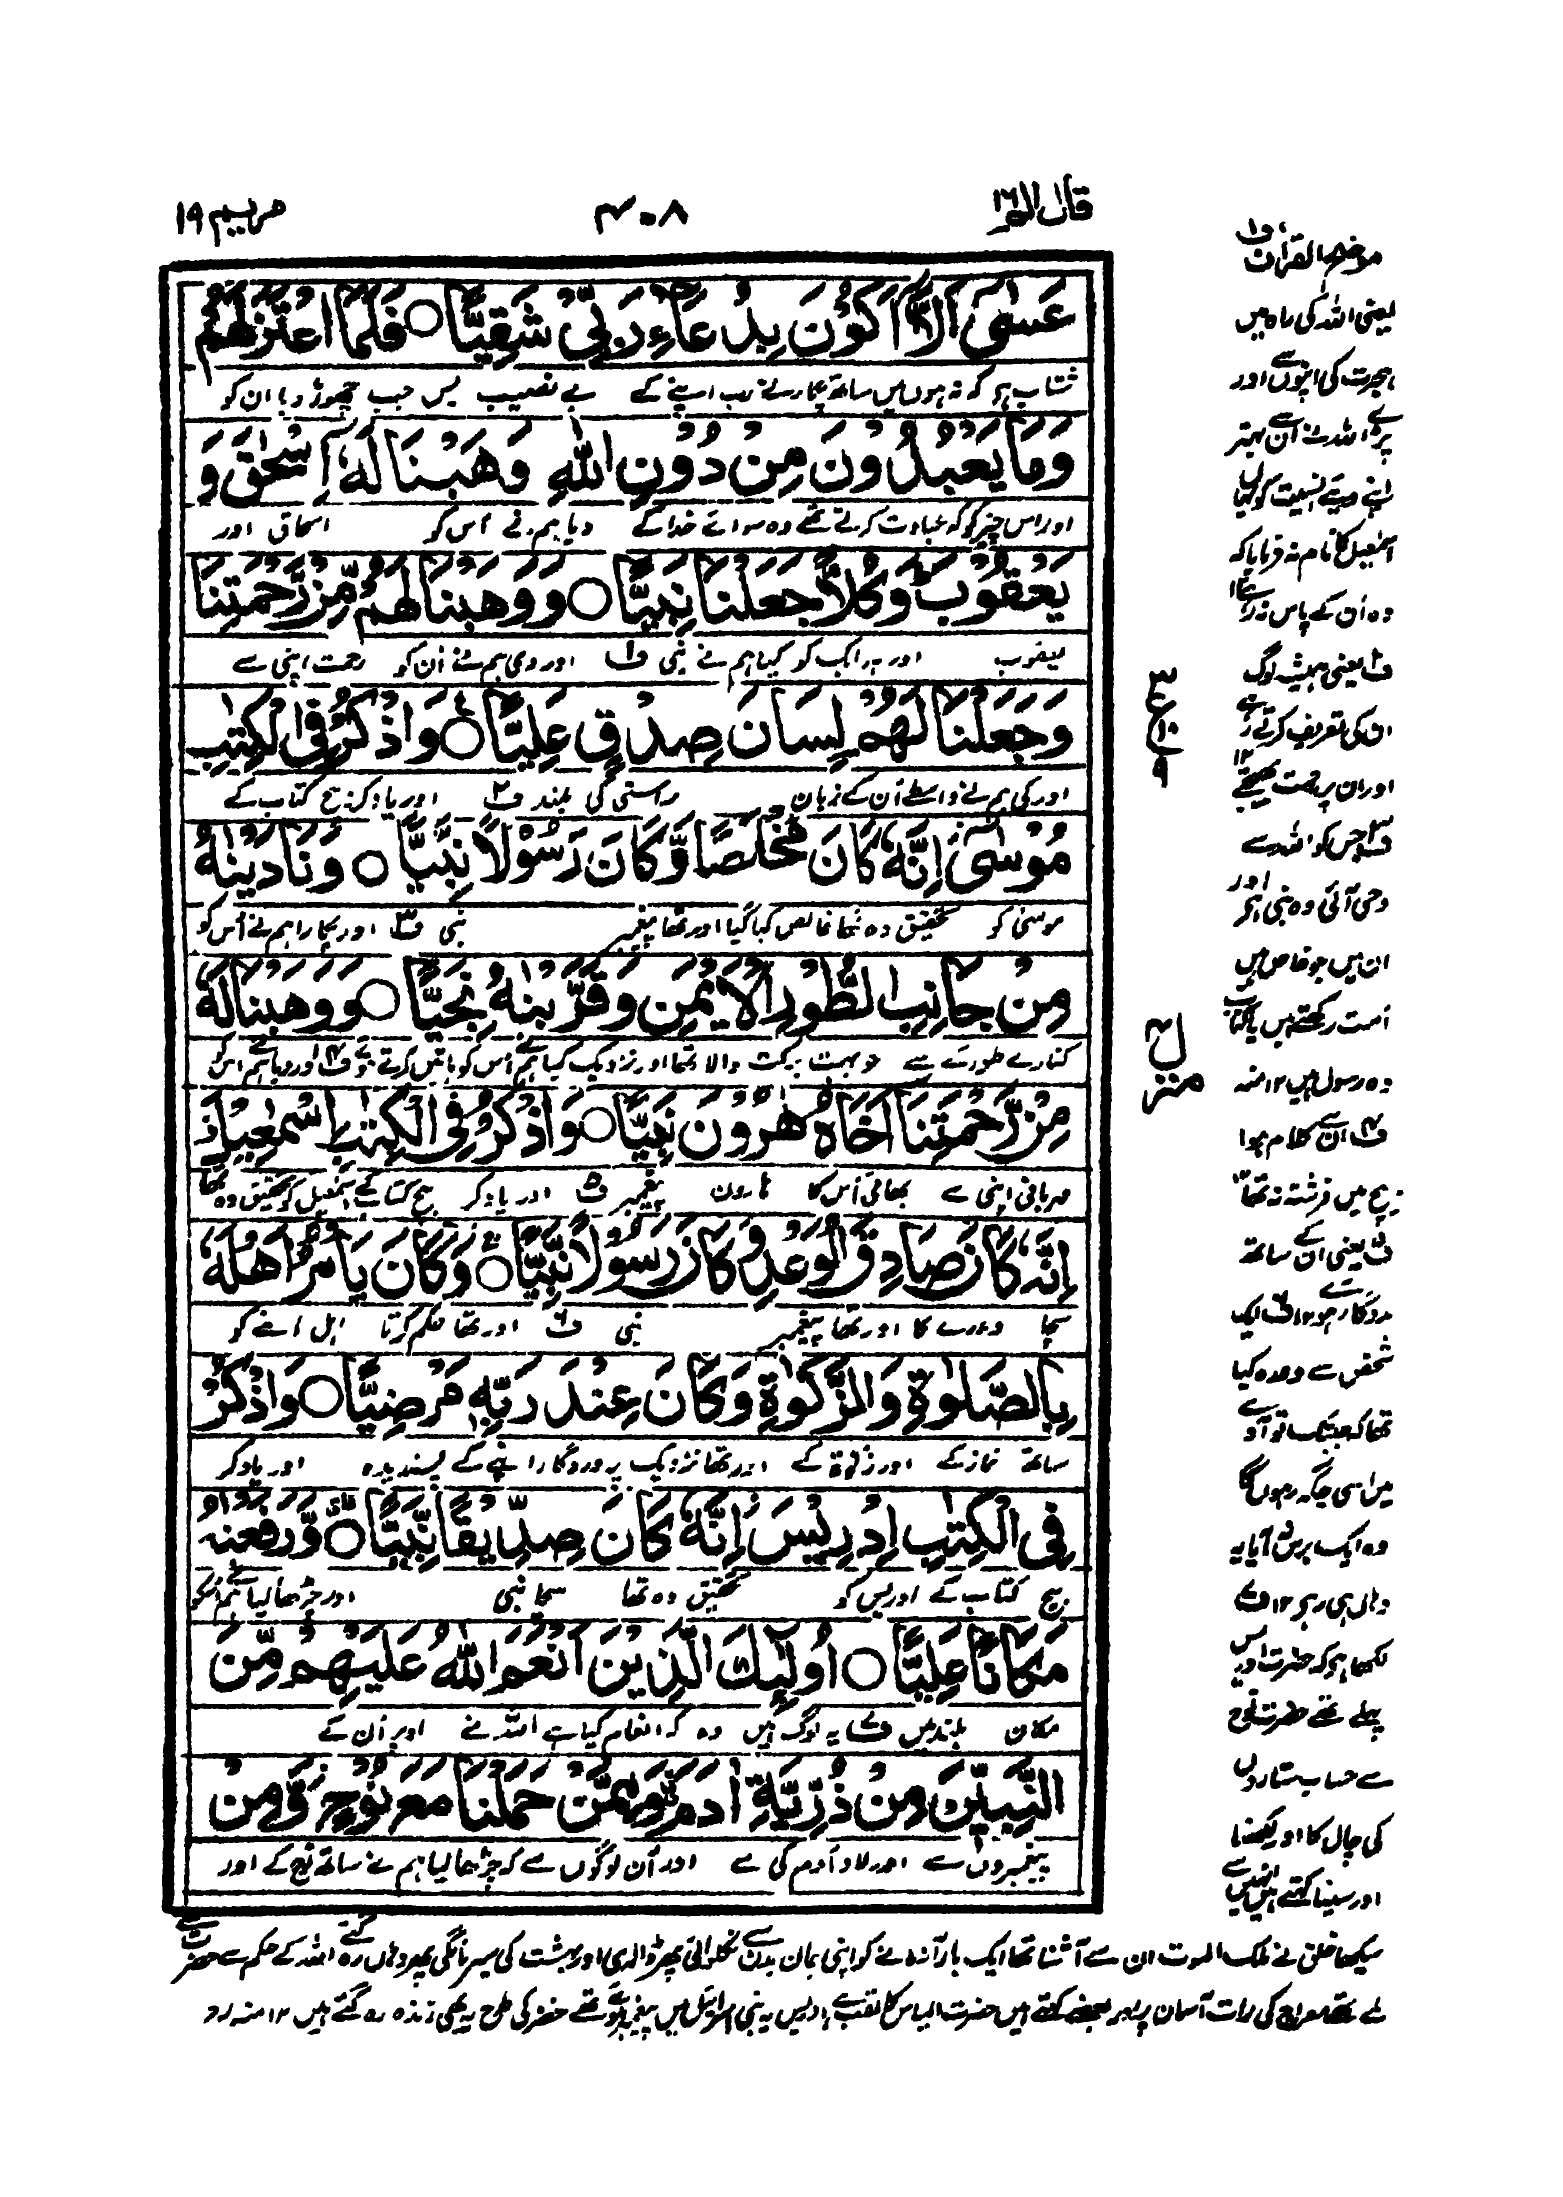 قال الم ١٦
٤٠٨
مريم ١٩
عَسٰٓى اَلَّآ اَكُوْنَ بِدُعَآءِ رَبِّيْ شَقِيًّا ○ فَلَمَّا اعْتَزَلَهُمْ
شتاب ہو کہ نہ ہوں میں ساتھ پکارنے رب اپنے کے بے نصیب پس جب چھوڑ دیا ان کو
وَمَا يَعْبُدُوْنَ مِنْ دُوْنِ اللّٰهِ وَهَبْنَا لَهٗٓ اِسْحٰقَ وَ
اور اس چیز کو کہ عبادت کرتے تھے وہ سوائے خدا کے دیا ہم نے اُس کو اسحاق اور
يَعْقُوْبَ وَكُلًّا جَعَلْنَا نَبِيًّا ○ وَوَهَبْنَا لَهُمْ مِّنْ رَّحْمَتِنَا
یعقوب اور ہر ایک کو کیا ہم نے نبی ف۱ اور دی ہم نے اُن کو رحمت اپنی سے
وَجَعَلْنَا لَهُمْ لِسَانَ صِدْقٍ عَلِيًّا ○ وَاذْكُرْ فِي الْكِتٰبِ
اور کی ہم نے واسطے اُن کے زبان راستی کی بلند ف۲ اور یاد کر بیچ کتاب کے
مُوْسٰٓى اِنَّهٗ كَانَ مُخْلَصًا وَّكَانَ رَسُوْلًا نَّبِيًّا ○ وَنَادَيْنٰهُ
موسیٰ کو تحقیق وہ تھا خالص کیا گیا اور تھا پیغمبر نبی ف۳ اور پکارا ہم نے اُس کو
مِنْ جَانِبِ الطُّوْرِ الْاَيْمَنِ وَقَرَّبْنٰهُ نَجِيًّا ○ وَوَهَبْنَا لَهٗ
کنارے طور کے سے جو بہت برکت والا تھا اور نزدیک کیا ہم نے اُس کو باتیں کرتے ہوئے ف۴ اور دیا ہم نے اس کو
مِنْ رَّحْمَتِنَآ اَخَاهُ هٰرُوْنَ نَبِيًّا ○ وَاذْكُرْ فِي الْكِتٰبِ اِسْمٰعِيْلَ
مہربانی اپنی سے بھائی اُس کا ہارون پیغمبر ف۵ اور یاد کر بیچ کتاب کے اسمٰعیل کو تحقیق وہ تھا
اِنَّهٗ كَانَ صَادِقَ الْوَعْدِ وَكَانَ رَسُوْلًا نَّبِيًّا ○ وَكَانَ يَاْمُرُ اَهْلَهٗ
سچا وعدے کا اور تھا پیغمبر نبی ف۶ اور تھا حکم کرتا اہل اپنے کو
بِالصَّلٰوةِ وَالزَّكٰوةِ وَكَانَ عِنْدَ رَبِّهٖ مَرْضِيًّا ○ وَاذْكُرْ
ساتھ نماز کے اور زکوٰۃ کے اور تھا نزدیک پروردگار اپنے کے پسندیدہ اور یاد کر
فِي الْكِتٰبِ اِدْرِيْسَ اِنَّهٗ كَانَ صِدِّيْقًا نَّبِيًّا ○ وَّرَفَعْنٰهُ
بیچ کتاب کے ادریس کو تحقیق وہ تھا سچا نبی اور چڑھا لیا ہم نے اُس کو
مَكَانًا عَلِيًّا ○ اُولٰٓئِكَ الَّذِيْنَ اَنْعَمَ اللّٰهُ عَلَيْهِمْ مِّنَ
مکان بلند میں ف۷ یہ لوگ ہیں وہ کہ انعام کیا ہے اللہ نے اوپر اُن کے
النَّبِيّٖنَ مِنْ ذُرِّيَّةِ اٰدَمَ وَمِمَّنْ حَمَلْنَا مَعَ نُوْحٍ وَّمِنْ
پیغمبروں سے اور لاد آدم کی سے اور اُن لوگوں سے کہ چڑھا لیا ہم نے ساتھ نوح کے اور
موضح القرآن ف۱
یعنی اللہ کی راہ میں
ہجرت کی اپنوں سے اور
پڑے اللہ نے ان سے بہتر
اپنے دیئے نسبت کو لگا
اسمٰعیل کا نام نہ فرمایا کہ
وہ اُن کے پاس نہ رہے تھے
ف۲ یعنی ہمیشہ لوگ
ان کی تعریف کرتے رہے
اور ان پر رحمت بھیجتے ۱۲
ف۳ جس کو اللہ سے
وحی آئی وہ نبی ہے اور
ان میں جو خاص ہیں
اُمت رکھتے ہیں یا کتاب
وہ رسول ہیں ۱۲ منہ
ف۴ ان سے کلام ہوا
بیچ میں فرشتہ نہ تھا
ف۵ یعنی ان کے ساتھ
مددگار ہوئے ۱۲ ف۶ ایک
شخص سے وعدہ کیا
تھا کہ جب تک تو آوے
میں اسی جگہ رہوں گا
وہ ایک برس نہ آیا یہ
وہاں ہی رہے ۱۲ ف۷
لکھا ہے کہ حضرت ادریس
پہلے تھے حضرت نوح
سے حساب ستاروں
کی چال کا اور لکھنا
اور سینا کہتے ہیں انہیں سے
سیکھا خلق نے ملک الموت ان سے آشنا تھا ایک بار آزمانے کو اپنی جان بدن سے نکلوائی پھر ڈالدی اور بہشت کی سیر مانگی پھر وہاں رہ گئے اللہ کے حکم سے حضرت سے
ملے تھے معراج کی رات آسمان پر بعضے کہتے ہیں حضرت الیاس کا لقب ہے ادریس یہ بنی اسرائیل میں پیغمبر ہوئے تھے خضر کی طرح یہ بھی زندہ رہ گئے ہیں ۱۲ منہ رح
ع
منزل ٤